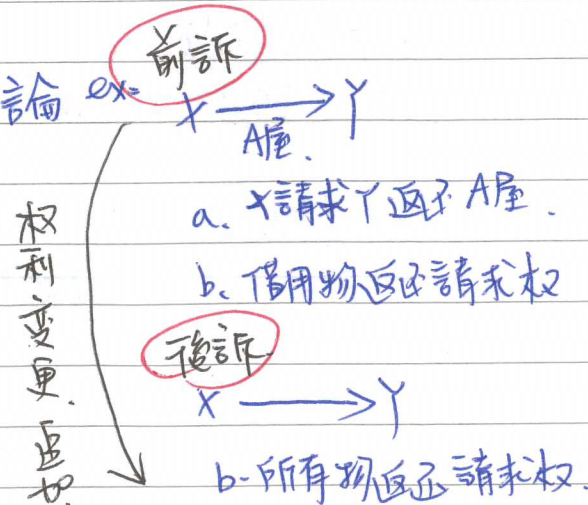 前訴
論 ex: X → Y
A屋.
a. X請求Y返还A屋.
b. 借用物返还請求权
後訴
X → Y
b-所有物返还請求权.
权利变更.追加